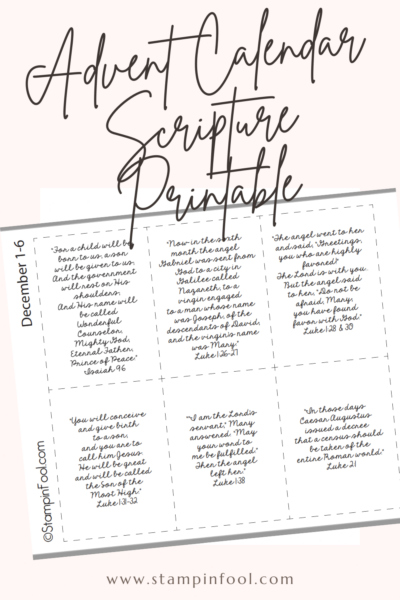 Advent Calendar
Scripture
Printable
December 1-6
"For a child will be
born to us, a son
will be given to us;
And the government
will rest on His
shoulders;
And His name will
be called
Wonderful
Counselor,
Mighty God,
Eternal Father,
Prince of Peace."
Isaiah 9:6
"Now in the sixth
month the angel
Gabriel was sent from
God to a city in
Galilee called
Nazareth, to a
virgin engaged
to a man whose name
was Joseph, of the
descendants of David;
and the virgin's name
was Mary."
Luke 1:26-27
"The angel went to her
and said, "Greetings,
you who are highly
favored!
The Lord is with you.
But the angel said
to her, "Do not be
afraid, Mary;
you have found
favor with God."
Luke 1:28 & 30
"You will conceive
and give birth
to a son,
and you are to
call him Jesus.
He will be great
and will be called
the Son of the
Most High."
Luke 1:31-32
""I am the Lord's
servant," Mary
answered. "May
your word to
me be fulfilled."
Then the angel
left her."
Luke 1:38
"In those days
Caesar Augustus
issued a decree
that a census should
be taken of the
entire Roman world."
Luke 2:1
©StampinFool.com
www.stampinfool.com